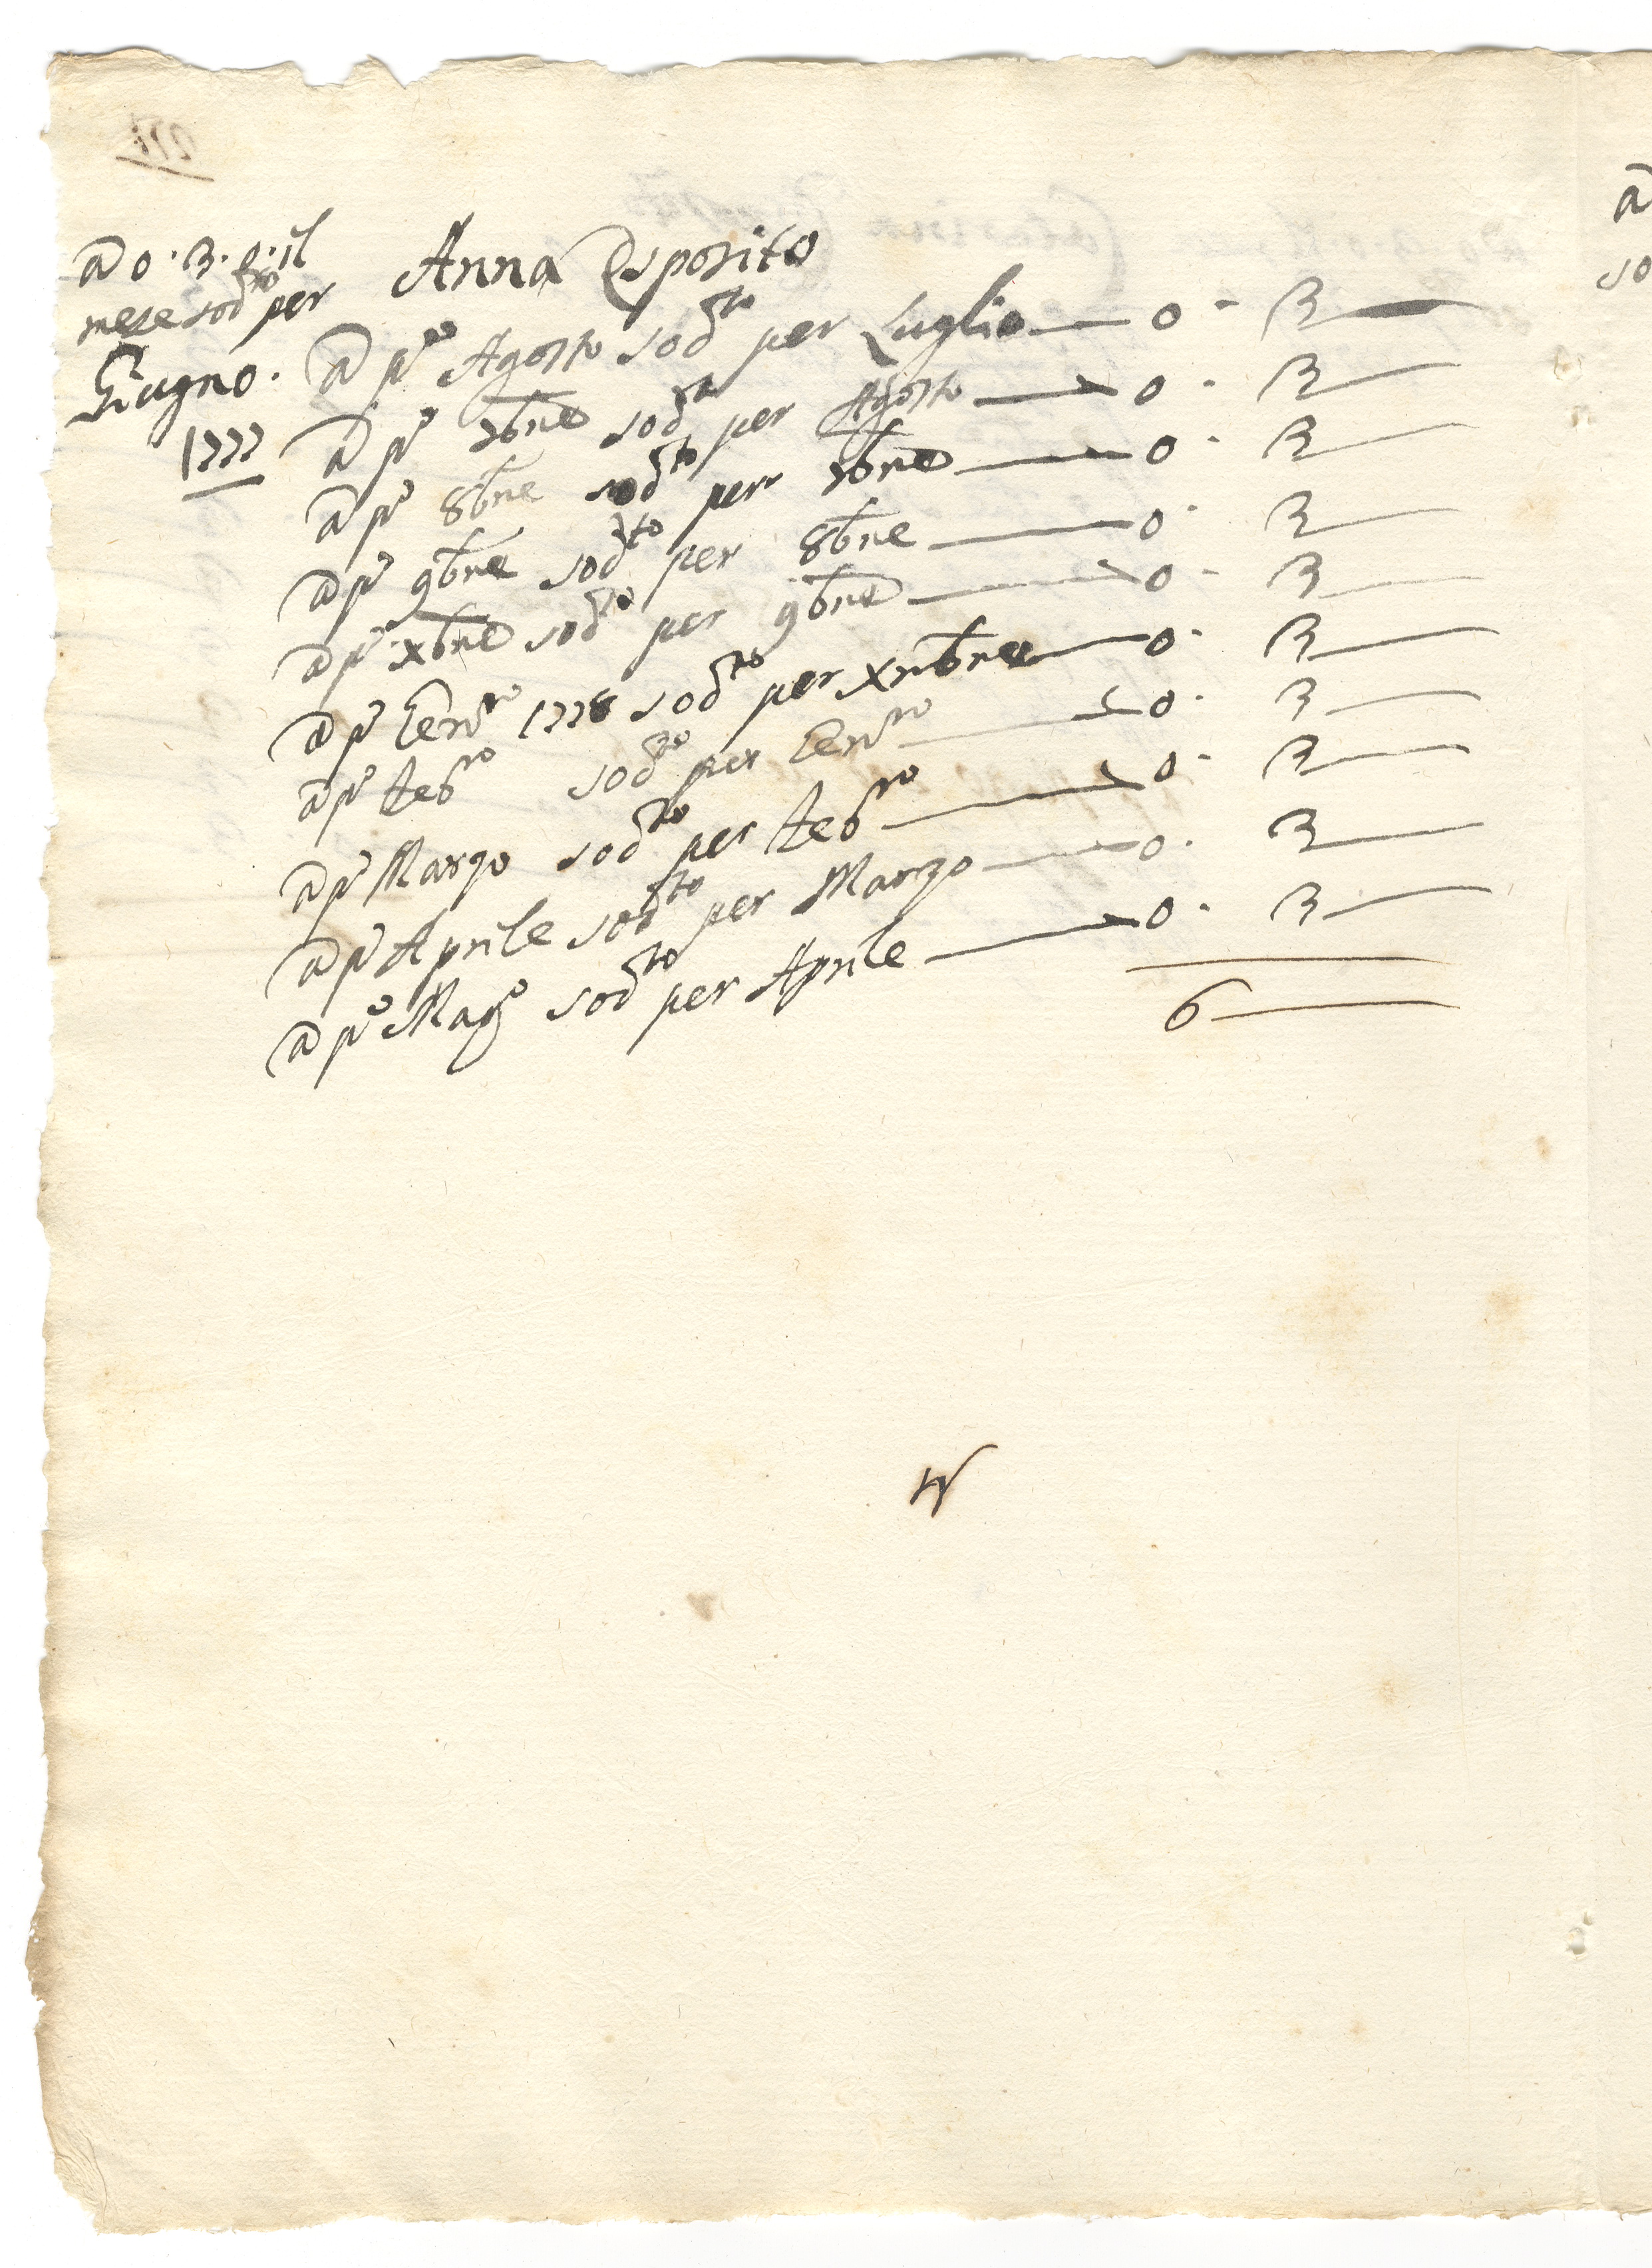 Anna Esposito
a 0.3.0. il
mese sodto per
Giugno.
1777
a po Agosto sodto per Luglio — 0 - 3 —
a po 7bre sodto per Agosto — 0 - 3 —
a po 8bre sodto per 7bre — 0 - 3 —
a po 9bre sodto per 8bre — 0 - 3 —
a po xbre sodto per 9bre — 0 - 3 —
a po Genro 1778 sodto per xmbre — 0 - 3 —
a po febro sodto per Genro — 0 - 3 —
a po Marzo sodto per febro — 0 - 3 —
a po Aprile sodto per Marzo — 0 - 3 —
a po Mago sodto per Aprile — 0 - 3 —
6 —
a
so